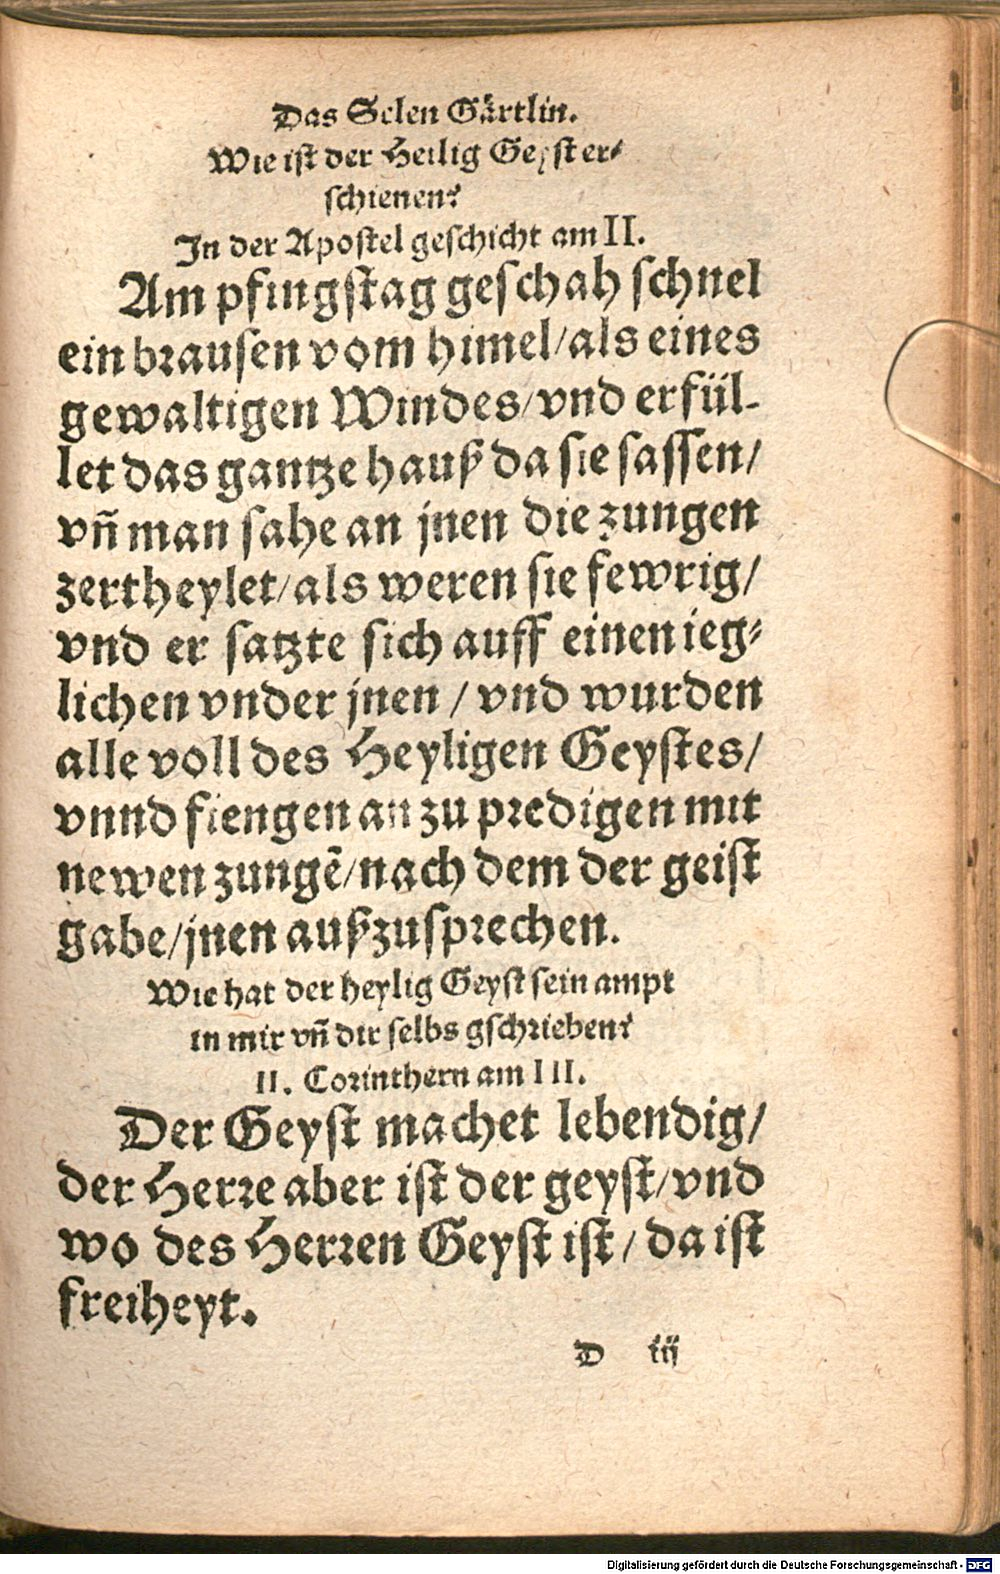 Das Selen Gärtlin.
Wie ist der Heilig Geyst er⸗
schienen?
In der Apostel geschicht am II.
Am pfingstag geschah schnel
ein brausen vom himel/als eines
gewaltigen Windes/vnd erfül-
let das gantze hauß da sie sassen/
vñ man sahe an jnen die zungen
zertheylet/als weren sie fewrig/
vnd er satzte sich auff einen ieg⸗
lichen vnder jnen / vnd wurden
alle voll des Heyligen Geystes/
vnnd fiengen an zu predigen mit
newen zungẽ/nach dem der geist
gabe/jnen außzusprechen.
Wie hat der heylig Geyst sein ampt
in mir vñ dir selbs gschrieben?
II. Corinthern am III.
Der Geyst machet lebendig/
der Herre aber ist der geyst/vnd
wo des Herren Geyst ist / da ist
freiheyt.
D iij
Digitalisierung gefördert durch die Deutsche Forschungsgemeinschaft - DFG